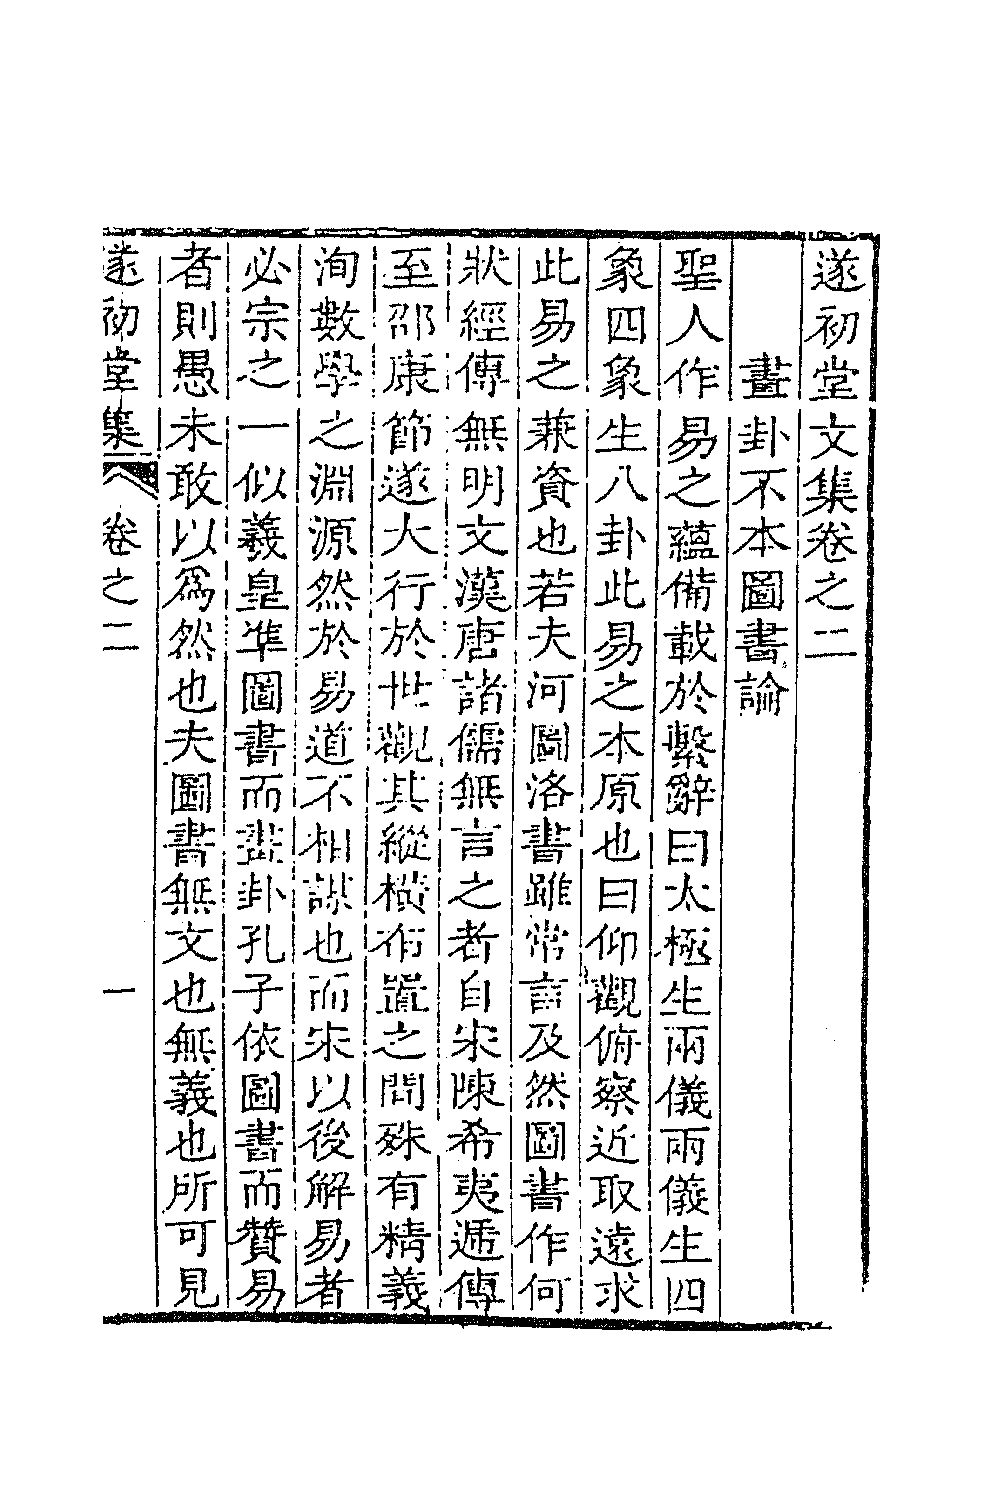 遂初堂文集卷之二
畫卦不本圖書論
聖人作易之蘊備載於繫辭曰太極生兩儀兩儀生四
象四象生八卦此易之本原也曰仰觀俯察近取遠求
此易之兼資也若夫河圖洛書雖常言及然圖書作何
狀經傳無明文漢唐諸儒無言之者自宋陳希夷遞傳
至邵康節遂大行於世觀其縱橫布置之間殊有精義
洵數學之淵源然於易道不相謀也而宋以後解易者
必宗之一似羲皇準圖書而畫卦孔子依圖書而贊易
者則愚未敢以爲然也夫圖書無文也無義也所可見
遂初堂集 卷之二 一